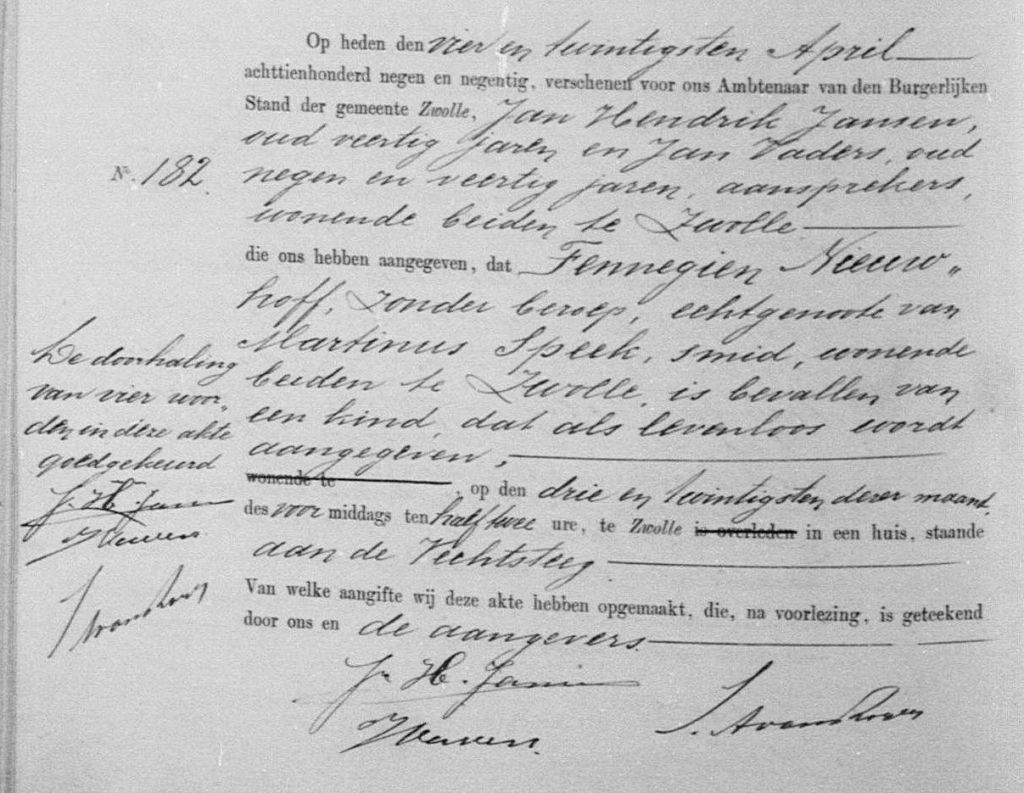 Op heden den vier en twintigsten April
achttienhonderd negen en negentig, verschenen voor ons Ambtenaar van den Burgerlijken
Stand der gemeente Zwolle, Jan Hendrik Jansen,
oud veertig jaren en Jan Vaders, oud
No. 182. negen en veertig jaren, aansprekers,
wonende beiden te Zwolle
die ons hebben aangegeven, dat Fennegien Nieuw„
hoff, zonder beroep, echtgenoote van
Martinus Speek, smid, wonende
beiden te Zwolle, is bevallen van
een kind, dat als levenloos wordt
aangegeven,
wonende te , op den drie en twintigsten dezer maand
des voor middags ten half twee ure, te Zwolle is overleden in een huis, staande
aan de Vechtsteeg
Van welke aangifte wij deze akte hebben opgemaakt, die, na voorlezing, is geteekend
door ons en de aangevers.
De doorhaling
van vier woor„
den in deze akte
goedgekeurd
J. H. Jansen
J. H. Jansen